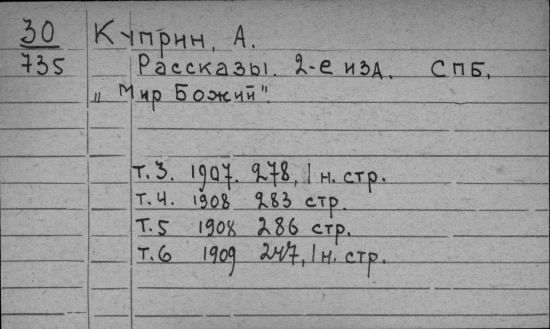 30 Куприн, А.
735 Рассказы. 2-е изд. СПБ,
„Мир Божий".
т.3. 1907. 278, 1 н. стр.
т.4. 1908 283 стр.
т.5 1908 286 стр.
т.6 1909 247, 1 н. стр.